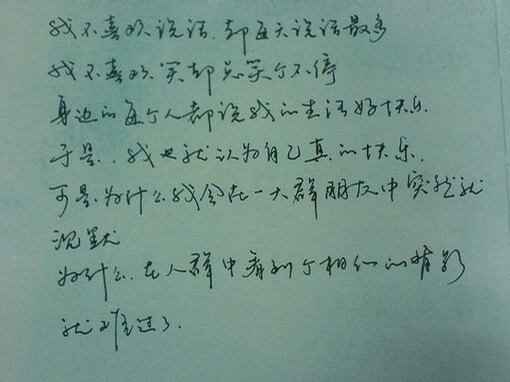 我不喜欢说话.却每天说话最多
我不喜欢笑却总笑个不停
身边的每个人都说我的生活好快乐
于是.我也就认为自己真的快乐.
可是.为什么我会在一大群朋友中突然就
沉默
为什么.在人群中看到个相似的背影
就难过了.